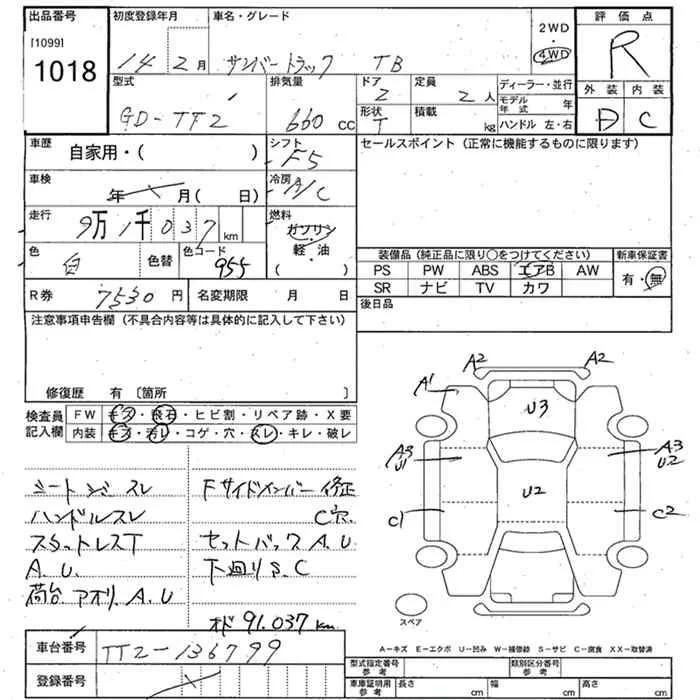 出品番号 初度登録年月 車名・グレード 2WD・4WD 評価点
[1099]
1018
14 2月 サンバートラック TB
R
型式 排気量 ドア 定員 ディーラー・並行 外装 内装
GD-TT2 660 cc 2 2人 モデル年式 年
形状 T 積載 kg ハンドル 左・右
D C
車歴 自家用・( ) シフト F5 セールスポイント (正常に機能するものに限ります)
車検 年 月( 日) 冷房 A/C
走行 9万1千037 km 燃料 ガソリン・軽・油 ( )
色 白 色替 色コード 955
装備品 (純正品に限り○をつけてください) 新車保証書
PS PW ABS エアB AW 有・無
SR ナビ TV カワ
R券 7530円 名変期限 月 日 後日品
注意事項申告欄 (不具合内容等は具体的に記入して下さい)
修復歴 有 〔箇所 〕
検査員記入欄 FW キズ・飛石・ヒビ割・リペア跡・X要
内装 キズ・汚レ・コゲ・穴・スレ・キレ・破レ
ハンドルスレ
スタットレスT
A.U.
荷台 アオリ.A.U
Fサイドメンバー修正
C穴.
セットバックA.U
下廻りS.C
オド 91.037km
A2 A2
A1
U3
A3 U1
A3 U2
U2
C1 C2
スペア
A-キズ E-エクボ U-凹み W-補修跡 S-サビ C-腐食 XX-取替済
車台番号 TT2-136799
登録番号
型式指定番号 参考 類別区分番号 参考
車庫証明用 参考 長さ cm 幅 cm 高さ cm